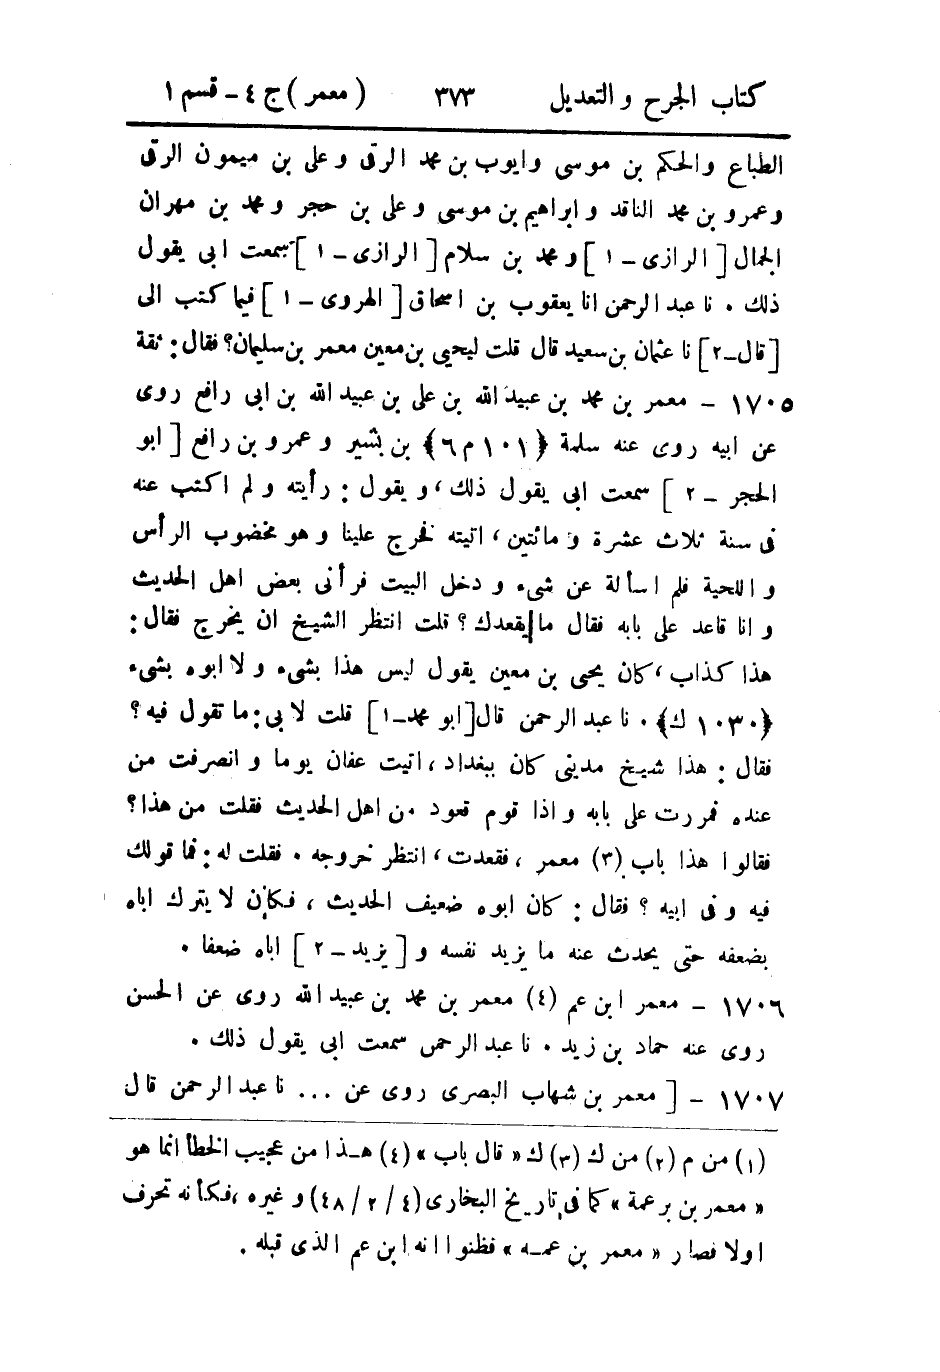 كتاب الجرح والتعديل ٣٧٣ (معمر) ج ٤ - قسم ١
الطباع والحكم بن موسى وايوب بن محمد الرقى وعلى بن ميمون الرقى
وعمرو بن محمد الناقد وابراهيم بن موسى وعلى بن حجر ومحمد بن مهران
الجمال [الرازى - ١] ومحمد بن سلام [الرازى - ١] سمعت ابى يقول
ذلك . نا عبد الرحمن انا يعقوب بن اسحاق [الهروى - ١] فيما كتب الى
[قال-٢] نا عثمان بن سعيد قال قلت ليحيى بن معين معمر بن سليمان؟ فقال: ثقة
١٧٠٥ - معمر بن محمد بن عبيد الله بن على بن عبيد الله بن ابى رافع روى
عن ابيه روى عنه سلمة ﴿١٠١ م ٦﴾ بن بشير وعمرو بن رافع [ابو
الحجر - ٢] سمعت ابى يقول ذلك، ويقول: رأيته ولم اكتب عنه
فى سنة ثلاث عشرة ومائتين، اتيته فخرج علينا وهو مخضوب الرأس
واللحية فلم اسألة عن شىء ودخل البيت فرآنى بعض اهل الحديث
وانا قاعد على بابه فقال ما يقعدك؟ قلت انتظر الشيخ ان يخرج فقال:
هذا كذاب، كان يحيى بن معين يقول ليس هذا بشىء ولا ابوه بشىء
﴿١٠٣٠ ك﴾ . نا عبد الرحمن قال [ابو محمد-١] قلت لابى: ما تقول فيه؟
فقال: هذا شيخ مدينى كان ببغداد، اتيت عفان يوما وانصرفت من
عنده فمررت على بابه واذا قوم قعود من اهل الحديث فقلت من هذا؟
فقالوا هذا باب (٣) معمر، فقعدت، انتظر خروجه . فقلت له: فما قولك
فيه وفى ابيه؟ فقال: كان ابوه ضعيف الحديث، فكان لا يترك اباه
بضعفه حتى يحدث عنه ما يزيد نفسه و [يزيد - ٢] اباه ضعفا .
١٧٠٦ - معمر ابن عم (٤) معمر بن محمد بن عبيد الله روى عن الحسن
روى عنه حماد بن زيد . نا عبد الرحمن سمعت ابى يقول ذلك .
١٧٠٧ - [معمر بن شهاب البصرى روى عن ... نا عبد الرحمن قال
(١) من م (٢) من ك (٣) ك «قال باب» (٤) هـذا من عجيب الخطأ انما هو
«معمر بن برعمة» كما فى تاريخ البخارى (٤ / ٢ / ٤٨) وغيره، فكأنه تحرف
اولا فصار «معمر بن عمـه» فظنوا انه ابن عم الذى قبله .